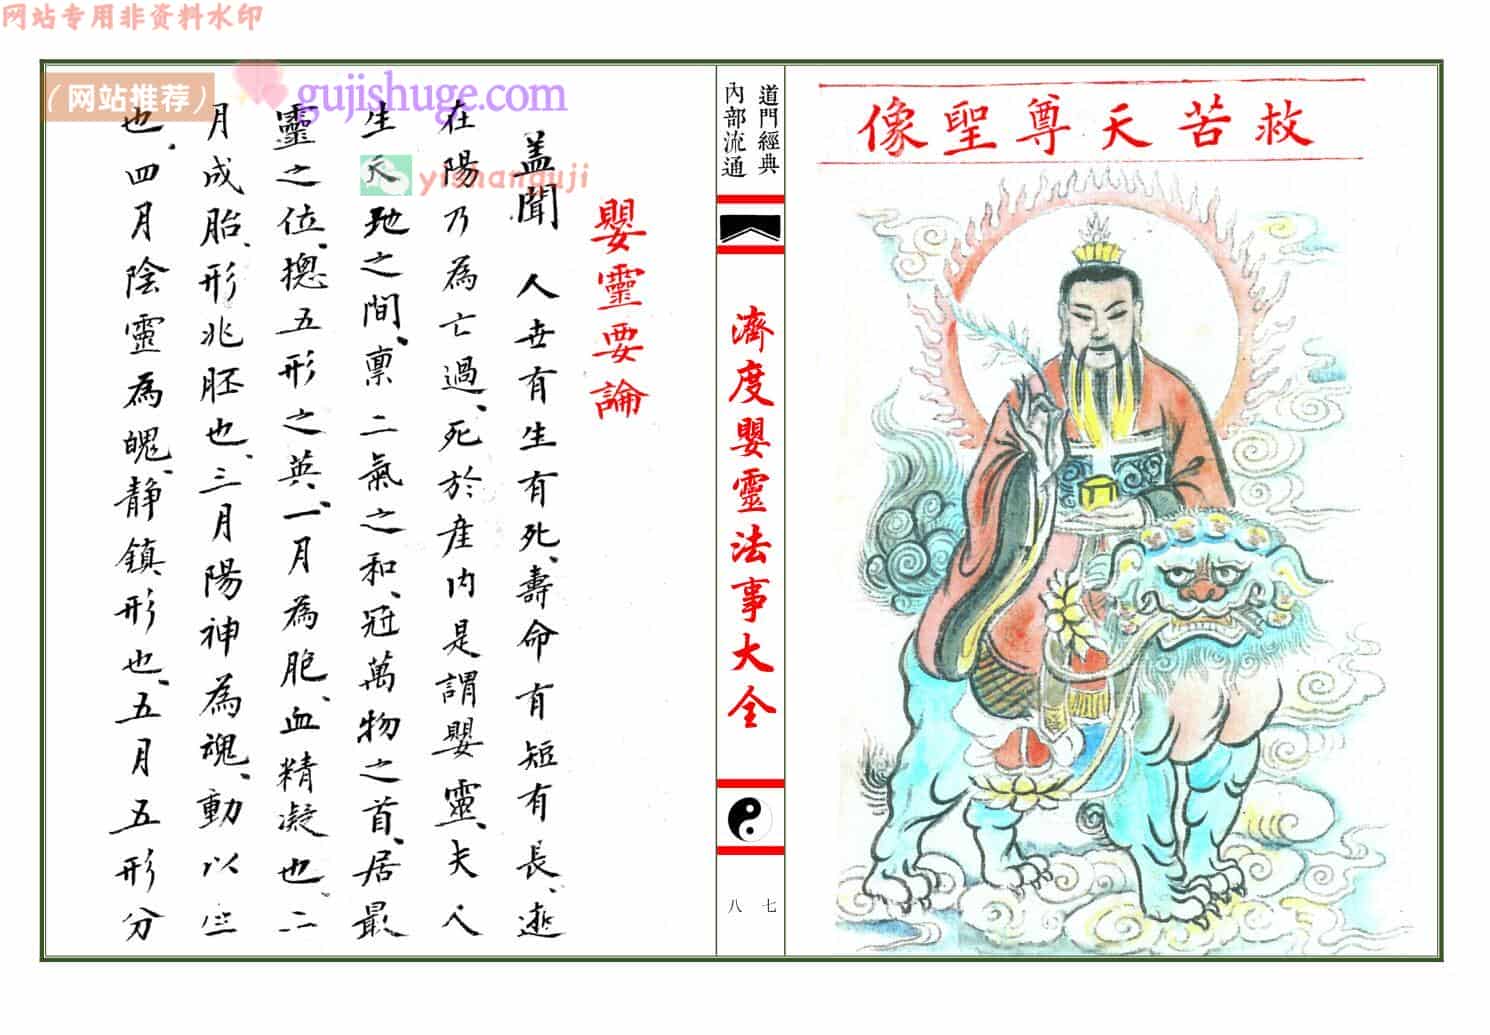 网站专用非资料水印
救苦天尊聖像
道門經典
內部流通
濟度嬰靈法事大全
七
八
（网站推荐）
gujishuge.com
yishanguji
嬰靈要論
盖聞 人世有生有死、壽命有短有長、遊
在陽乃為亡過、死於產内是謂嬰靈、夫人
生天地之間、禀二氣之和、冠萬物之首、居最
靈之位、摠五形之英、一月為胞、血精凝也、二
月成胎、形兆胚也、三月陽神為魂、動以生
也、四月陰靈為魄、静鎮形也、五月五形分